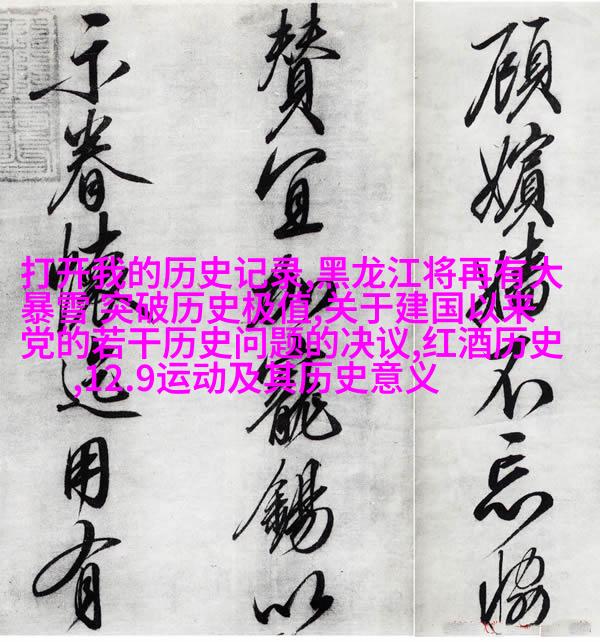 顧嬪嬙不忘恊
贊宜加寵錫以
示眷懷迄用有
打开我的历史记录,黑龙江将再有大
暴雪 突破历史极值,关于建国以来
党的若干历史问题的决议,红酒历史
,12.9运动及其历史意义